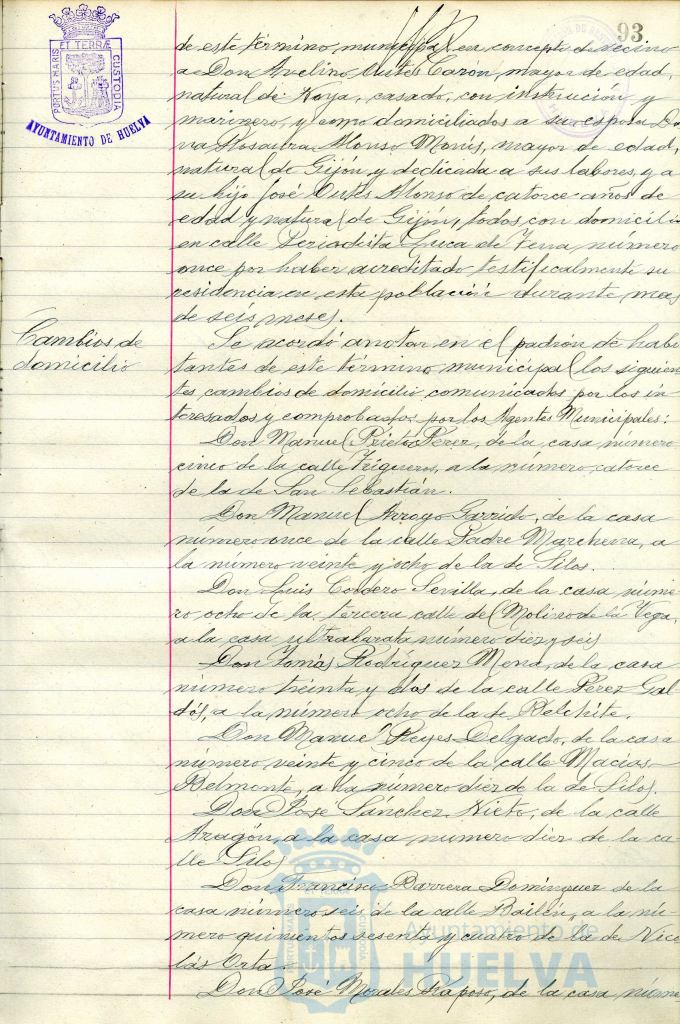 93
PORTUS MARIS ET TERRÆ CUSTODIA
AYUNTAMIENTO DE HUELVA
de este término, municipal en concepto de vecino
a Don Avelino Cortés Carón, mayor de edad,
natural de Noya, casado, con instrucción y
marinero, y como domiciliados a su esposa Do
ña Rosaura Alonso Monis, mayor de edad,
natural de Gijón y dedicada a sus labores, y a
su hijo José Cortés Alonso de catorce años de
edad y natural de Gijón, todos con domicilio
en calle Periodista Luca de Tena número
once por haber acreditado testificalmente su
residencia en esta población durante mas
de seis meses.
Cambios de
domicilio
Se acordó anotar en el padrón de habi
tantes de este término municipal los siguien
tes cambios de domicilio comunicados por los in
teresados y comprobados por los Agentes Municipales:
Don Manuel Prieto Perez, de la casa número
cinco de la calle Trigueros, a la número catorce
de la de San Sebastián.
Don Manuel Arroyo Garrido, de la casa
número once de la calle Padre Marchena, a
la número veinte y ocho de la de Silos.
Don Luis Cordero Sevilla, de la casa núme
ro ocho de la tercera calle del Molino de la Vega,
a la casa ultrabarata número diez y seis
Don Tomás Rodríguez Mena, de la casa
número treinta y dos de la calle Pérez Gal
dós, a la número ocho de la de Belchite.
Don Manuel Reyes Delgado, de la casa
número veinte y cinco de la calle Macias
Belmonte, a la número diez de la de Silos.
Don José Sánchez Nieto, de la calle
Aragón, a la casa numero diez de la ca-
lle Silos
Don Francisco Barrera Domínguez de la
casa número seis de la calle Bailén, a la nú-
mero quinientos sesenta y cuatro de la de Nico
lás Orta.
Don José Morales Raposo, de la casa núme-
Ayuntamiento de
HUELVA